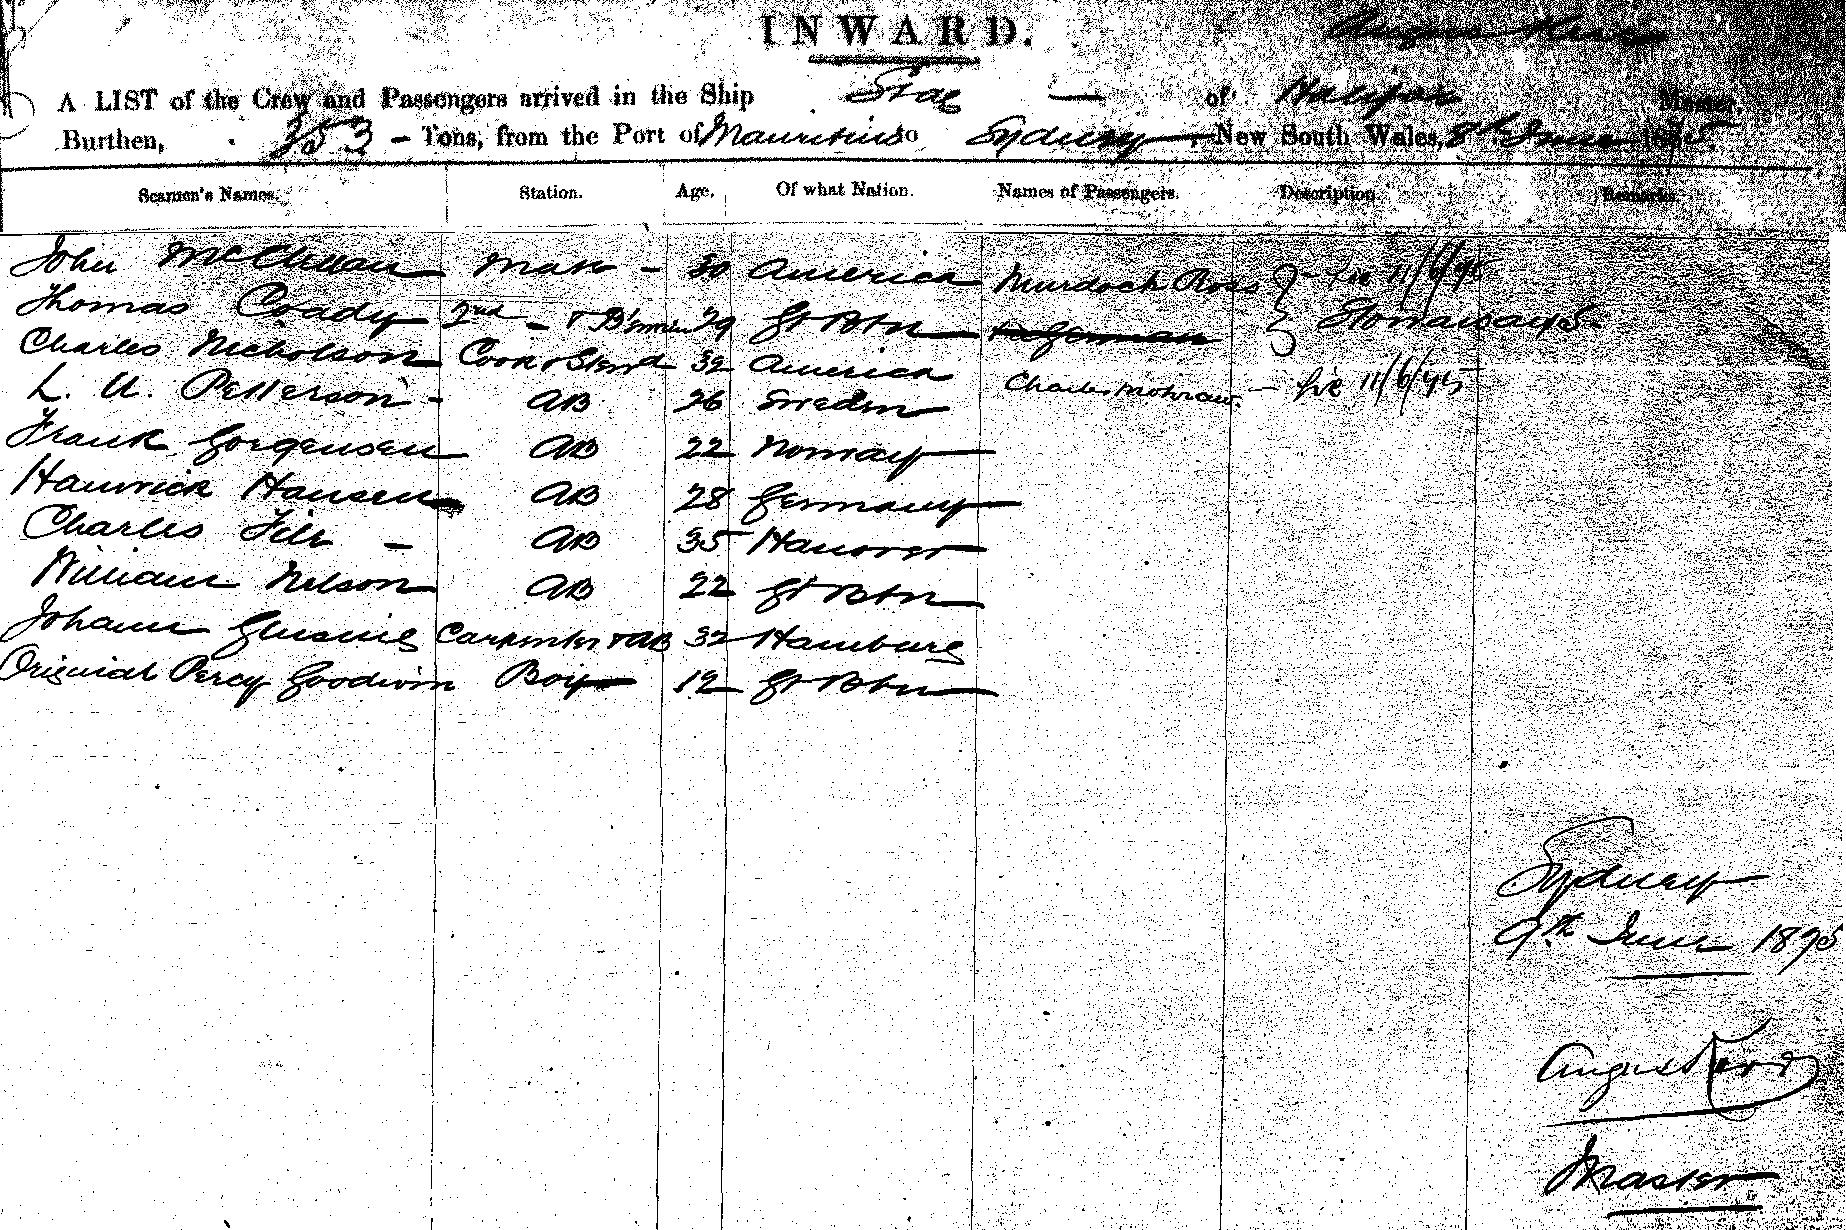 INWARD.
Angus
A LIST of the Crew and Passengers arrived in the Ship Stag — of Halifax Master,
Burthen, 353 - Tons, from the Port of Mauritius to Sydney, New South Wales, 8th June 1895.
Seamen's Names. Station. Age. Of what Nation. Names of Passengers. Description Remarks.
John McClellan Mate - 30 America Murdoch Ross 11/6/95
Thomas Coady 2nd - & 29 Gt Btn Stowaways.
Charles Nicholson Cook & Stewd 32 America
L. A. Petterson - AB 26 Sweden Charles - fre 11/6/95
Frank Gorgensen AB 22 Norway
Hanrick Hansen AB 28 Germany
Charles - AB 35 Hanover
William Nelson AB 22 Gt Btn
Johann Carpenter & AB 32 Hamburg
Original Percy Goodwin Boy 12 Gt Btn
Sydney
9th June 1895
Angus
Master